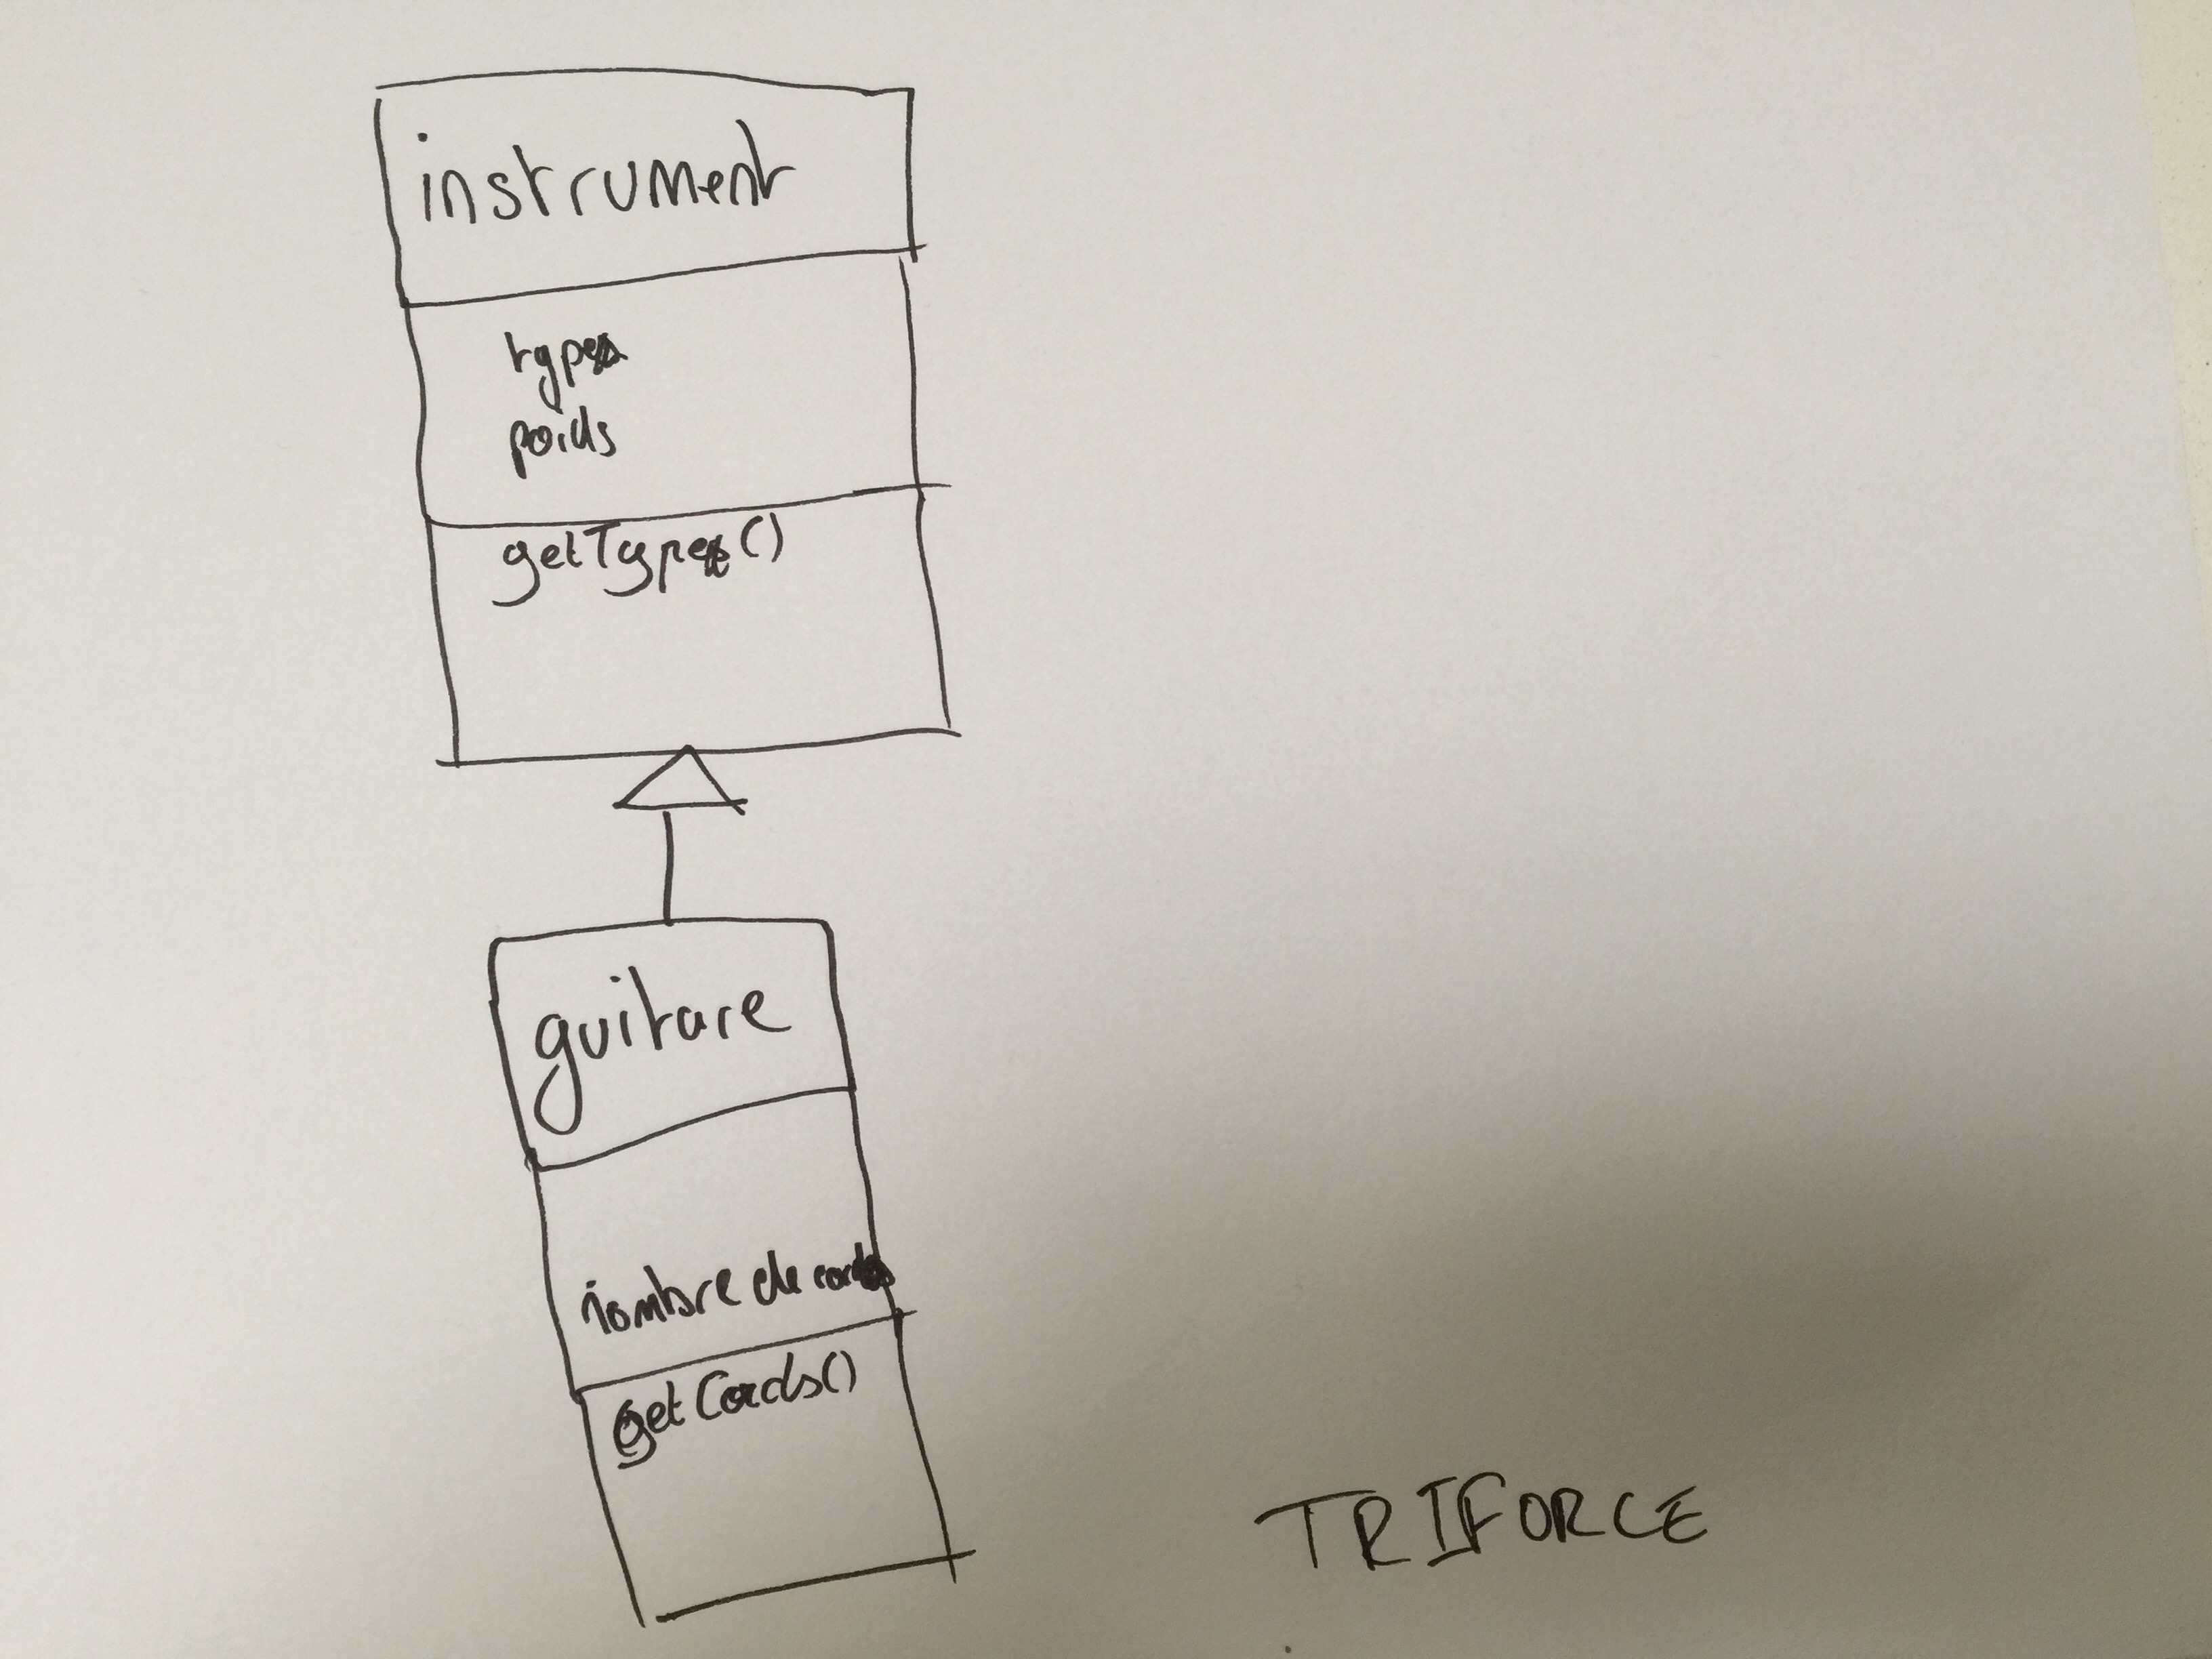 instrument
types
poids
getTypes()
guitare
nombre de
getCords()
TRIFORCE